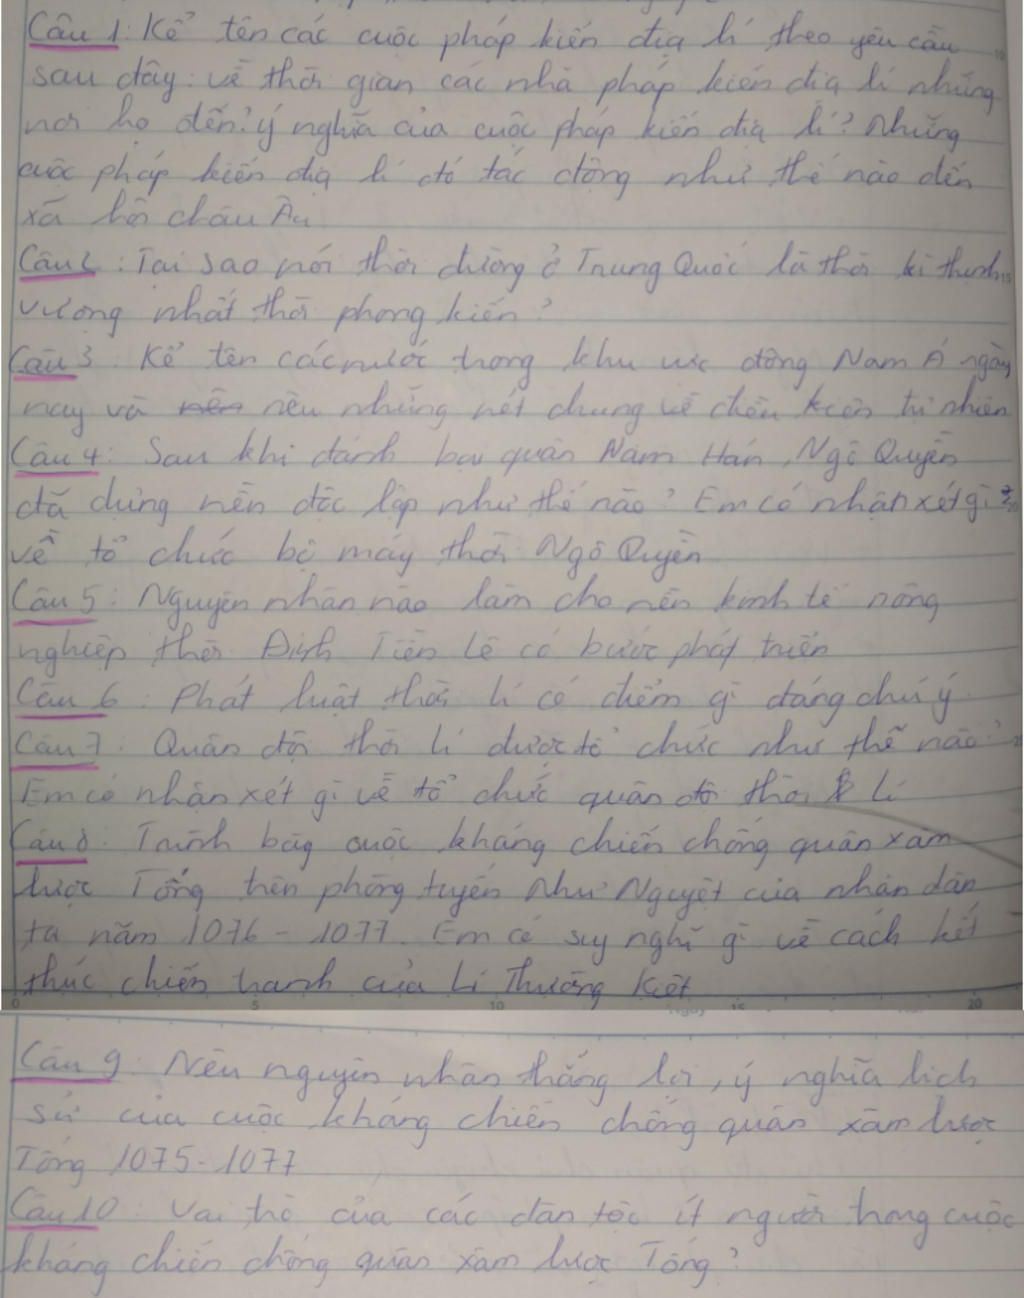 Câu 1: Kể tên các cuộc pháp kiến địa lí theo yêu cầu
sau đây: về thời gian các nhà pháp kiến địa lí những
nơi họ đến? ý nghĩa của cuộc pháp kiến địa lí? Những
cuộc pháp kiến địa lí đó tác động như thế nào đến
xã hội châu Âu
Câu 2: Tại sao nói thời đường ở Trung Quốc là thời kì thịnh
vương nhất thời phong kiến?
Câu 3: Kể tên các nước trong khu vực đông Nam Á ngày
nay và nêu những nét chung về điều kiện tự nhiên
Câu 4: Sau khi đánh bại quân Nam Hán, Ngô Quyền
đã dựng nền độc lập như thế nào? Em có nhận xét gì
về tổ chức bộ máy thời Ngô Quyền
Câu 5: Nguyên nhân nào làm cho nền kinh tế nông
nghiệp thời Đinh Tiền Lê có bước phát triển
Câu 6: Phát luật thời lí có điểm gì đáng chú ý
Câu 7: Quân đội thời lí được tổ chức như thế nào?
Em có nhận xét gì về tổ chức quân đội thời Lí
Câu 8: Trình bày cuộc kháng chiến chống quân xâm
lược Tống trên phòng tuyến Như Nguyệt của nhân dân
ta năm 1076 - 1077. Em có suy nghĩ gì về cách kết
thúc chiến tranh của Lí Thường Kiệt
0 5 10 15 20
Câu 9: Nêu nguyên nhân thắng lợi, ý nghĩa lịch
sử của cuộc kháng chiến chống quân xâm lược
Tống 1075-1077
Câu 10: Vai trò của các dân tộc ít người trong cuộc
kháng chiến chống quân xâm lược Tống?